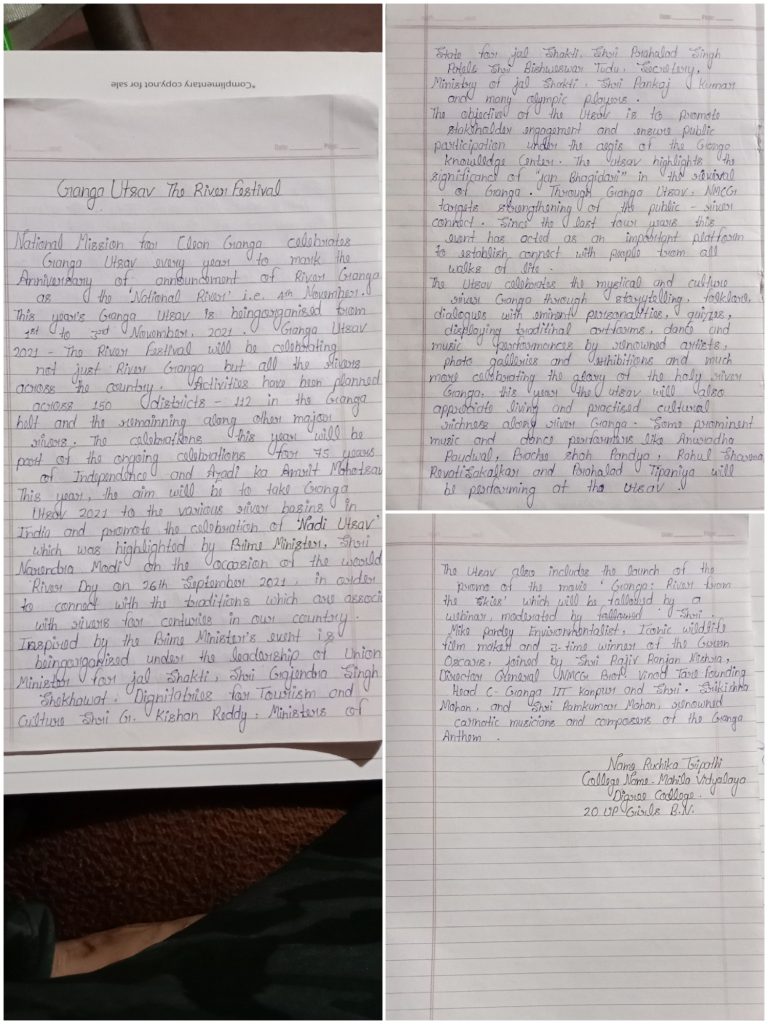 *Complimentary copy.not for sale
Date Page
Ganga Utsav The River Festival
National Mission for Clean Ganga celebrates
Ganga Utsav every year to mark the
Anniversary of announcement of River Ganga
as the 'National River' i.e. 4th November.
This year's Ganga Utsav is beingorganised from
1st to 3rd November, 2021. Ganga Utsav
2021 - The River Festival will be celebrating
not just River Ganga but all the rivers
across the country. Activities have been planned
across 150 districts - 112 in the Ganga
belt and the remainning along other major
rivers. The celebrations this year will be
part of the ongoing celebrations for 75 years
of Independence and Azadi ka Amrit Mahotsav
This year, the aim will be to take Ganga
Utsav 2021 to the various river basins in
India and promote the celebration of 'Nadi Utsav'
which was highlighted by Prime Minister, Shri
Narendra Modi on the occasion of the world
River Day on 26th September 2021, in order
to connect with the traditions which are associ
with rivers for centuries in our country.
Inspired by the Prime Minister's event is
beingorganized under the leadership of Union
Minister for jal Shakti, Shri Gajendra Singh
Shekhawat. Dignitatries for Tourism and
Culture Shri G. Kishan Reddy, Ministers of
Date Page
State for jal Shakti, Shri Prahalad Singh
Patels Shri Bishweswar Tudu, Secretery,
Ministry of jal Shakti, Shri Pankaj Kumar
and many olympic players.
The objective of the Utsav is to promote
stakholder engagement and ensure public
participation under the aegis of the Ganga
Knowledge Center. The utsav highlights the
significance of "jan Bhagidari" in the revival
of Ganga. Through Ganga Utsav, NMCG
targets strengthening of the public - river
connect. Since the last four years this
event has acted as an important platform
to establish connect with people from all
walks of life.
The Utsav celebrates the mystical and culture
river Ganga through storytelling, folklore,
dialogues with eminent personalities, quizes,
displaying traditinal artforms, dance and
music performances by renowned artists,
photo galleries and exhibitions and much
more celebrating the glory of the holy river
Ganga, this year the utsav will also
appreciate living and practised cultural
richness along river Ganga. Some prominent
music and dance performers like Anuradha
Paudwal, Prache shah Pandya, Rahul Sharma
Revati Sakalkar and Prahalad Tipaniya will
be performing at the utsav.
The Utsav also includes the launch of the
promo of the movie 'Ganga: River from
the Skies' which will be followed by a
webinar, moderated by followed Shri.
Mike pandey Environmentalist, Iconic wildlife
film maker and 3-time winner of the Green
Oscars, joined by Shri Rajiv Ranjan Mishra,
Director General NMCG Prof Vinod Tare founding
Head C- Ganga IIT Kanpur and Shri. Srikishna
Mohan, and Shri Ramkumar Mohan, renowned
carnatic musicians and composers of the Ganga
Anthem.
Name Ruchika Tripathi
College Name - Mahila Vidyalaya
Digree Codlege.
20 UP Girls B.N.